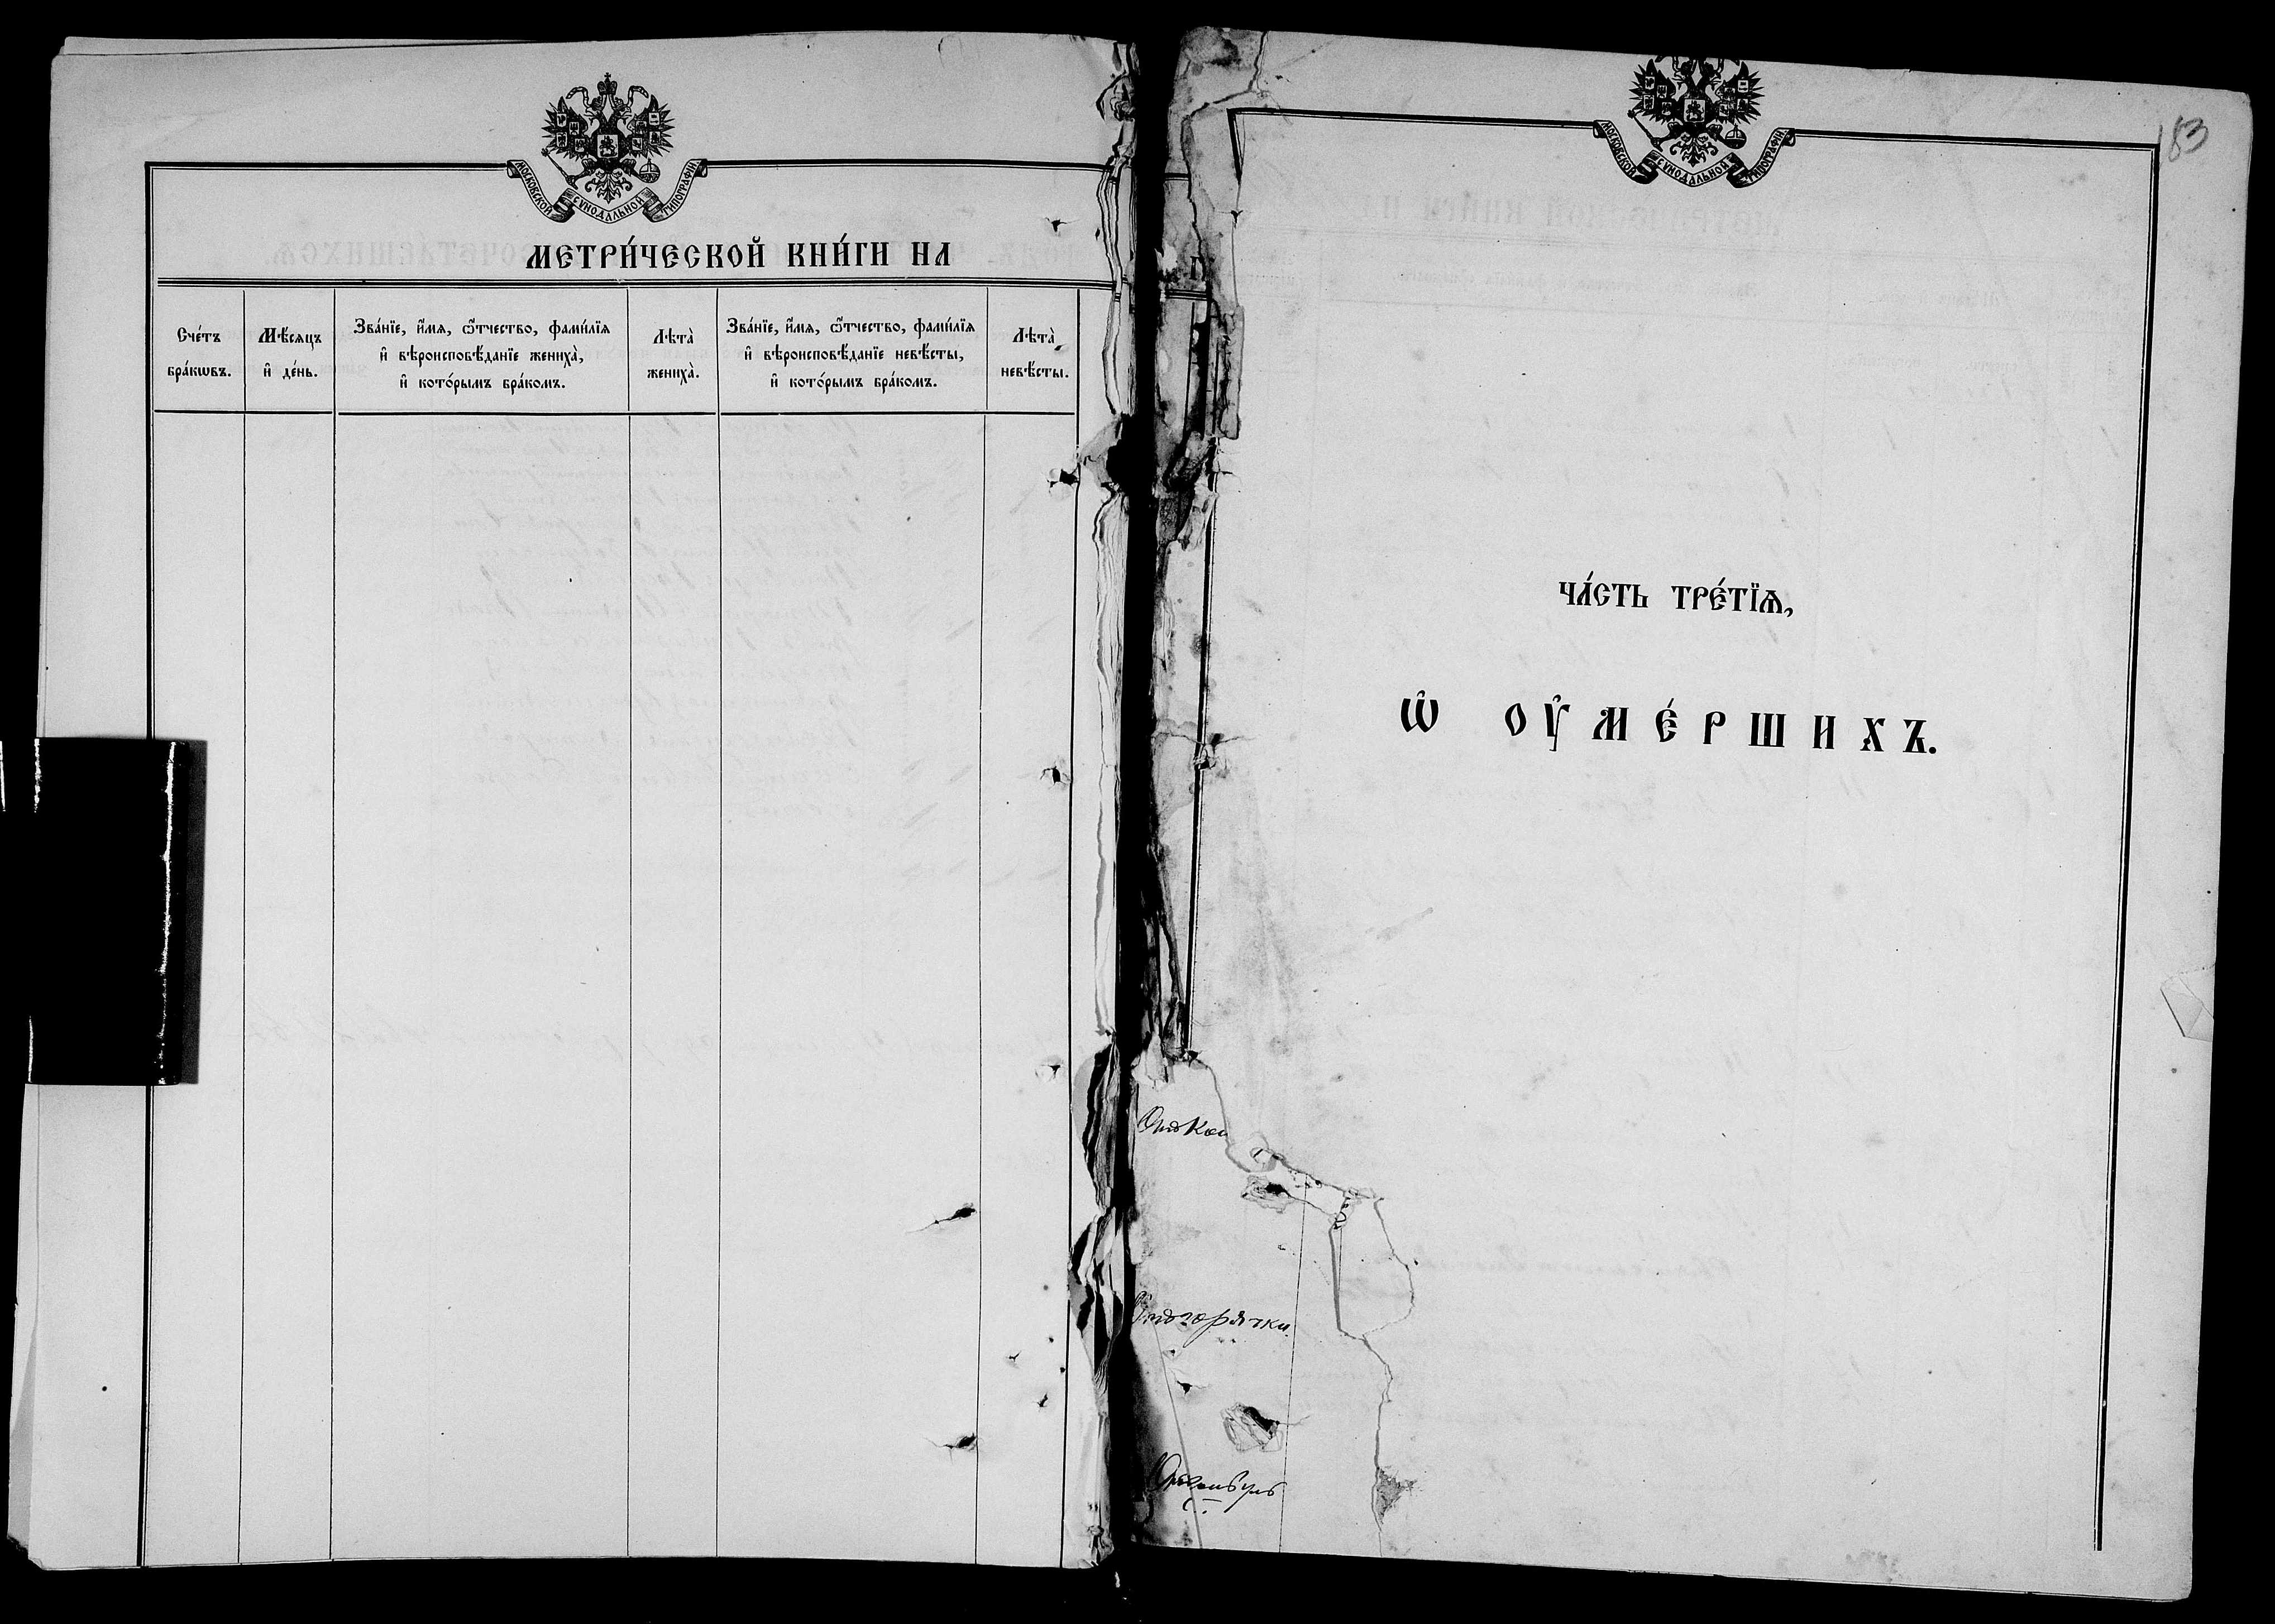 МОСКОВСКОЙ СѴНОДАЛЬНОЙ ТИПОГРАФІИ
МЕТРИ́ЧЕСКОЙ КНИ́ГИ НА
Сче́тъ бра́кѡвъ.
Мѣ́сяцъ и҆ де́нь.
Зва́нїе, и҆́мя, ѻ҆́тчество, фами́лїя
и҆ вѣроисповѣ́данїе жениха̀,
и҆ кото́рымъ бра́комъ.
Лѣта̀ жениха̀.
Зва́нїе, и҆́мя, ѻ҆́тчество, фами́лїя
и҆ вѣроисповѣ́данїе невѣ́сты,
и҆ кото́рымъ бра́комъ.
Лѣта̀ невѣ́сты.
183
МОСКОВСКОЙ СѴНОДАЛЬНОЙ ТИПОГРАФІИ
ЧА́СТЬ ТРЕ́ТЇѦ,
Ѡ҆ ОУ҆МЕ́РШИХЪ.
Отъ горячки